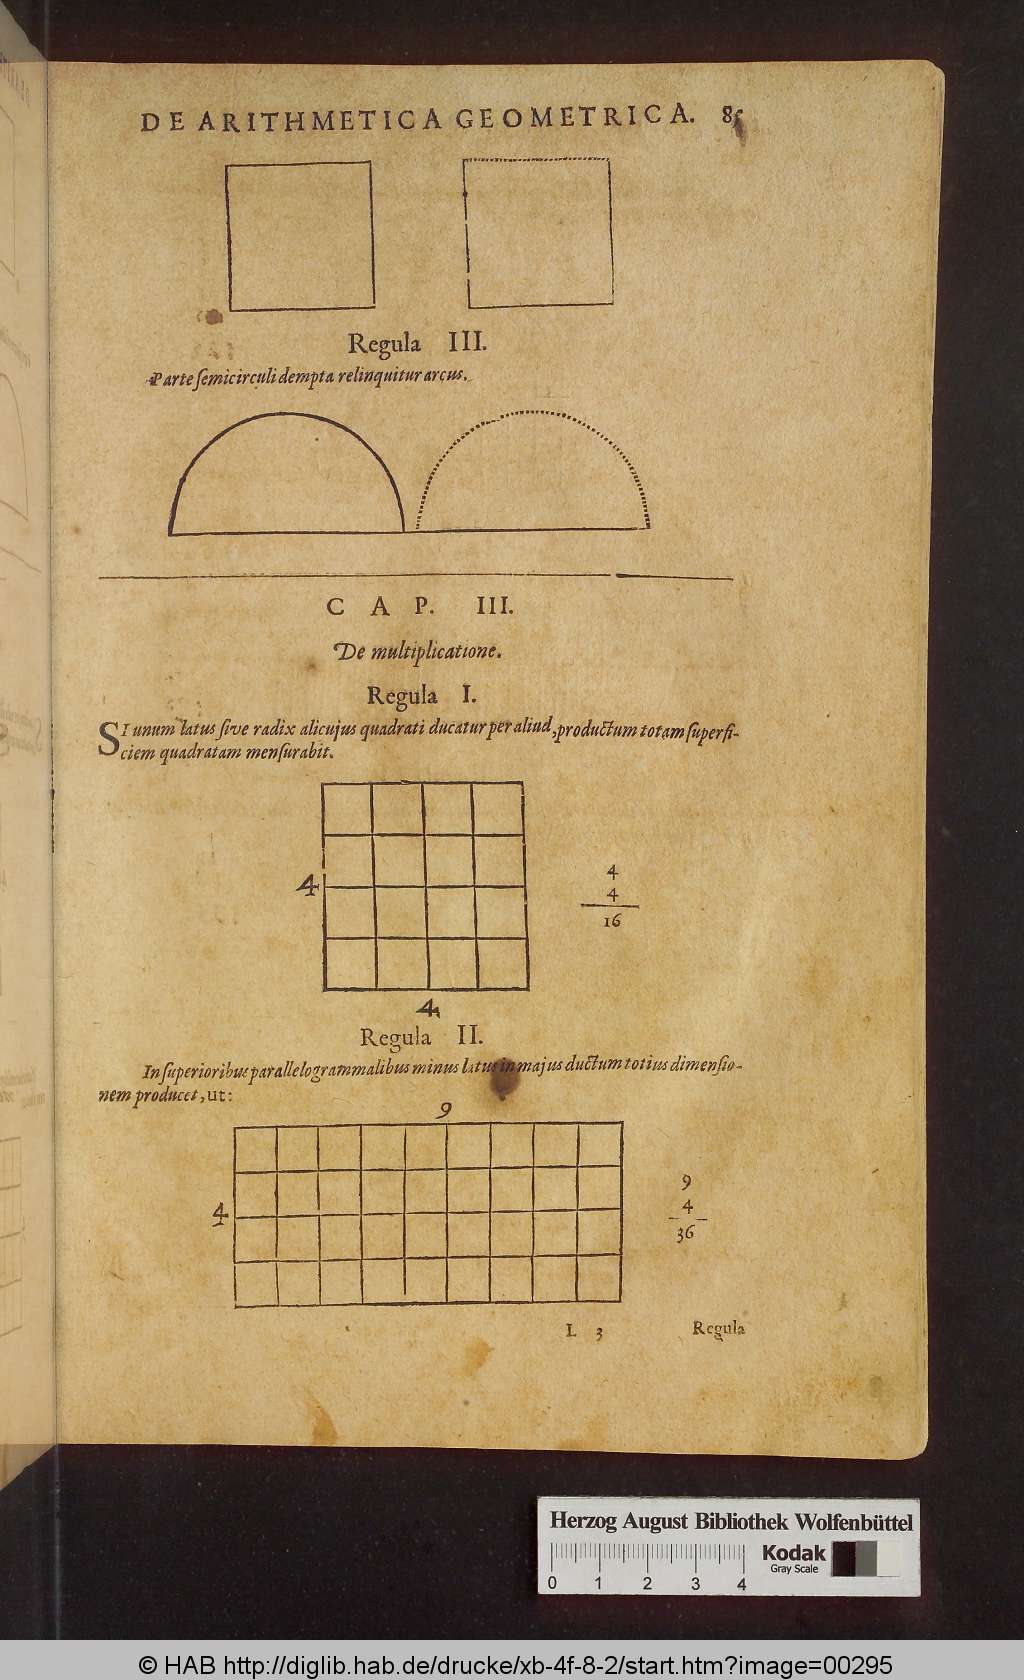 DE ARITHMETICA GEOMETRICA. 85
Regula III.
Parte ſemicirculi dempta relinquitur arcus.
CAP. III.
De multiplicatione.
Regula I.
SI unum latus ſive radix alicujus quadrati ducatur per aliud, productum totam ſuperfi-
ciem quadratam menſurabit.
4
4
4
16
4
Regula II.
In ſuperioribus parallelogrammalibus minus latus in majus ductum totius dimenſio-
nem producet, ut:
9
4
9
4
36
L 3 Regula
Herzog August Bibliothek Wolfenbüttel
Kodak
Gray Scale
0 1 2 3 4
© HAB http://diglib.hab.de/drucke/xb-4f-8-2/start.htm?image=00295